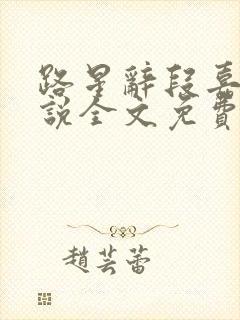 路星辭段嘉
說全文免費
趙芸蕾